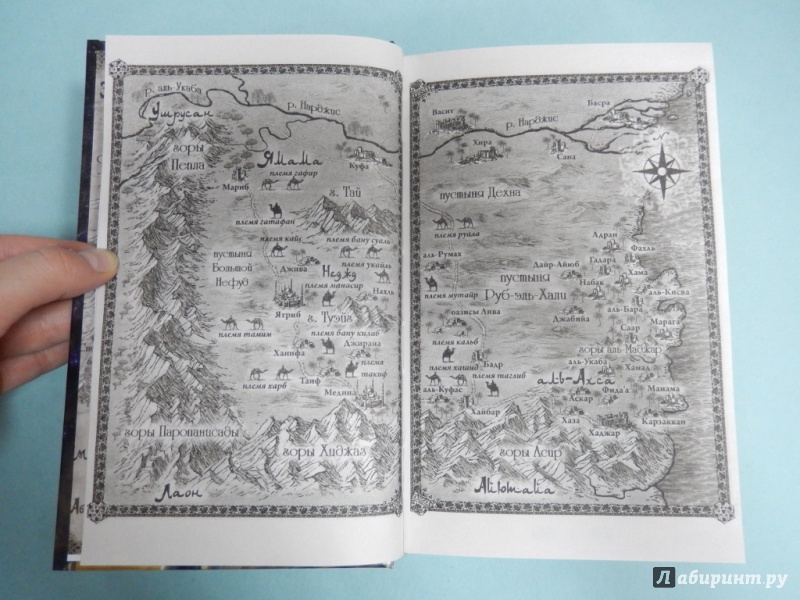 р. аль-Укаба
Ушрусан
р. Нарджис
горы
Пепла
Ямама
племя гафир
Куфа
Мариб
г. Тай
племя гатафан
племя кайс
племя бану суаль
пустыня
Большой
Нефуд
Джива
Неджд
племя укайль
племя манасир
Нахль
Ясриб
г. Туэйг
племя тамим
племя бану килаб
Ханифа
Джирана
племя
такиф
племя харб
Таиф
Медина
горы Паропанисады
горы Хиджаз
Лаон
Васит
Басра
р. Нарджис
Хира
Сава
пустыня Дехна
племя руала
Адран
Фахль
аль-Румах
Дайр-Айюб
Галара
Хама
пустыня
Руб-эль-Хали
Набак
аль-Кисва
племя мутайр
оазисы Лива
Джабийа
аль-Бара
Марага
Саар
племя кальб
горы аль-Маджар
Бадр
аль-Укаба
Хамал
племя таглиб
аль-Ахса
Фида'а
Манама
аль-Куфас
Аскар
Хайбар
Хаза
Карзаккан
Хаджар
горы Асир
Лабиринт.ру